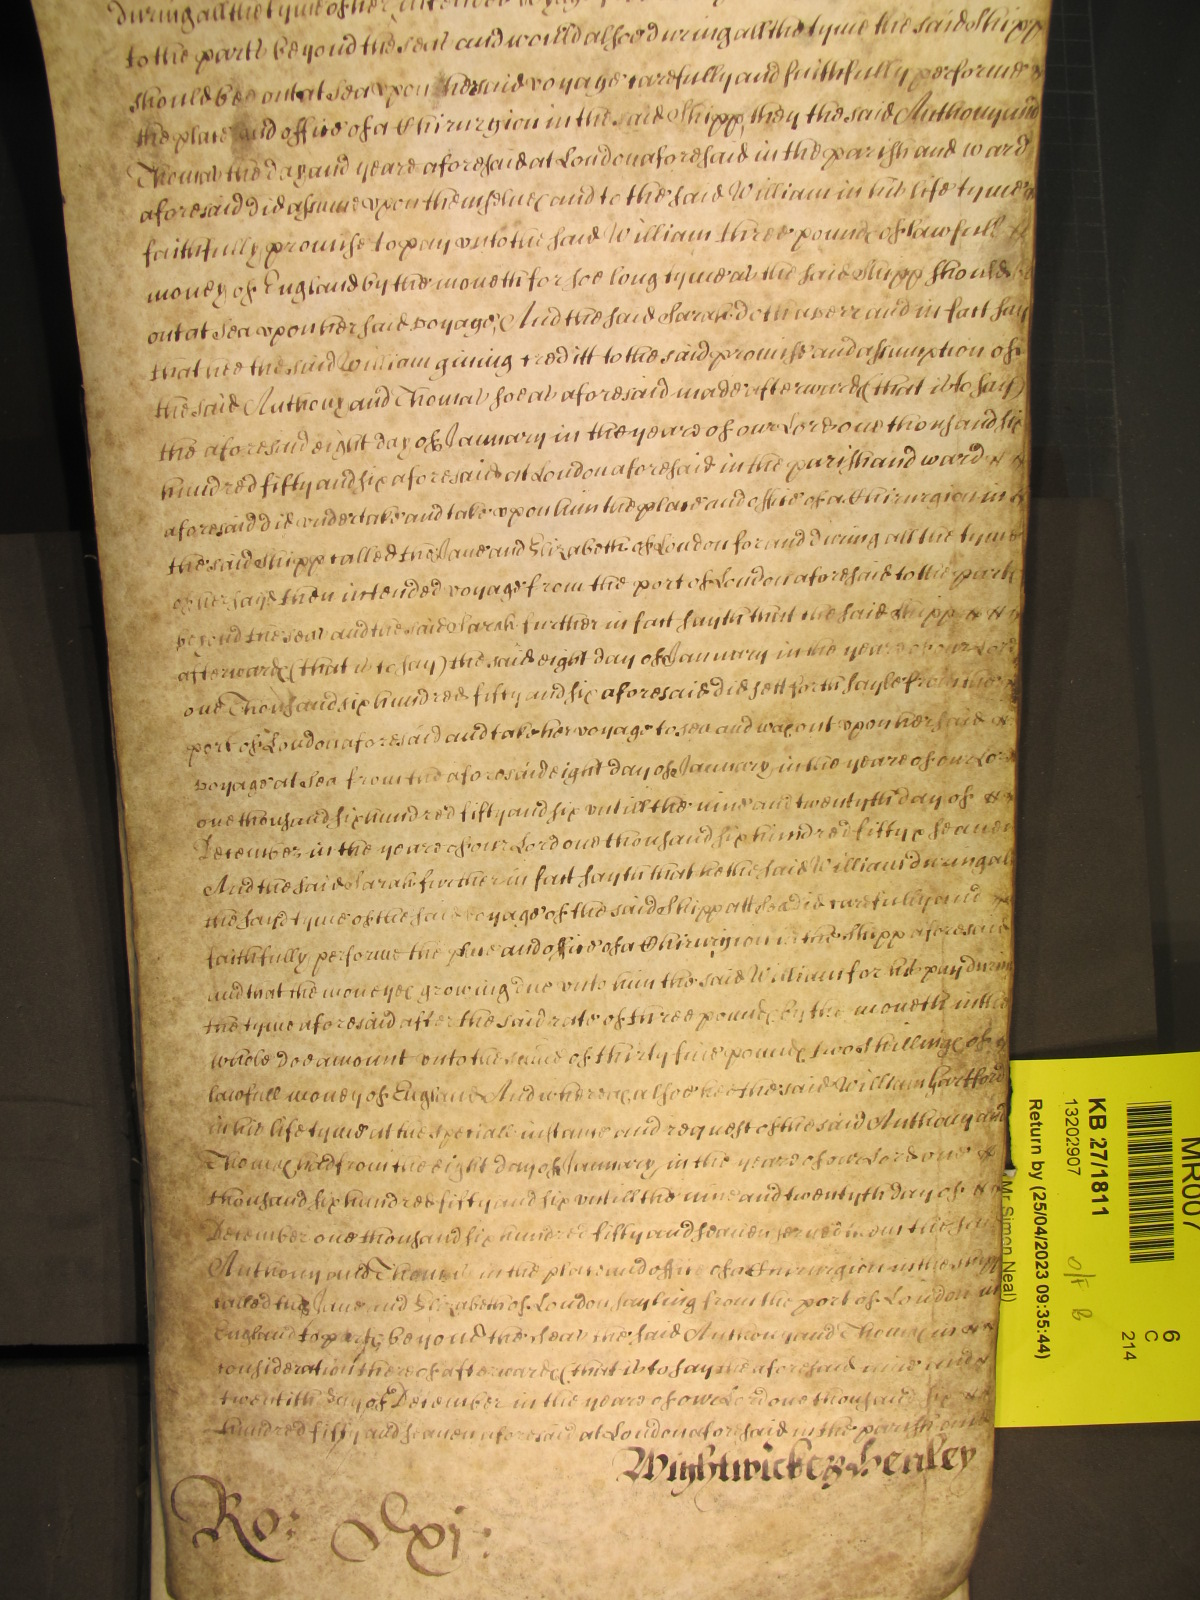 during all the tyme of her intended voyage
to the parts beyond the seas and would alsoe during all the tyme the said Shipp
should bee out at Sea vpon her said voyage carefully and faithfully performe
the place and office of a Chirurgion in the said Shipp, they the said Anthony and
Thomas the day and yeare aforesaid at London aforesaid in the parish and ward
aforesaid did assume vpon themselues and to the said William in his life tyme
faithfully promise to pay vnto the said William three pounds of lawfull
money of England by the moneth for soe long tyme as the said Shipp should
out at Sea vpon her said voyage, And the said Sarah doth averr and in fact say
that hee the said William giuing creditt to the said promise and assumption of
the said Anthony and Thomas soe as aforesaid made afterwards (that is to say)
the aforesaid eight day of January in the yeare of our Lord one thousand six
hundred fifty and six aforesaid at London aforesaid in the parish and ward
aforesaid did vndertake and take vpon him the place and office of a Chirurgion in
the said Shipp called the Jane and Elizabeth of London for and during all the tyme
of her said then intended voyage from the port of London aforesaid to the parts
beyond the seas and the said Sarah further in fact sayth that the said Shipp
afterwards (that is to say) the said eight day of January in the yeare of our Lord
one Thousand six hundred fifty and six aforesaid did sett forth sayle from the
port of London aforesaid and take her voyage to sea and was out vpon her said
voyage at Sea from the aforesaid eight day of January in the yeare of our Lord
one thousand six hundred fifty and six vntill the nine and twentyth day of
December in the yeare of our Lord one thousand six hundred fifty & seauen
And the said Sarah further in fact sayth that he the said William during all
the sayd tyme of the said voyage of the said Shipp att Sea did carefully and
faithfully performe the place and office of a Chirurgion in the Shipp aforesaid
and that the moneyes growing due vnto him the said William for his pay during
the tyme aforesaid after the said rate of three pounds by the moneth in the
whole doe amount vnto the summe of thirty fiue pounds two shillings of
lawfull money of England And whereas alsoe hee the said William Hartford
in his life tyme at the speciall instance and request of the said Anthony and
Thomas had from the eight day of January in the yeare of our Lord one
thousand six hundred fifty and six vntill the nine and twentyth day of
December one thousand six hundred fifty and seauen serued
Anthony and Thomas in the place and office of a Chirurgion in the Shipp
called the Jane and Elizabeth of London sayling from the port of London in
England to parts beyond the seas the said Anthony and Thomas in
consideration thereof afterwards (that is to say) the aforesaid nine and
twentith day of December in the yeare of our Lord one thousand six
hundred fifty and seauen aforesaid at London aforesaid in the parish and
Wightwicke & Henley
Ro: Clxj:
MR007
6
C
214
KB 27/1811
13202907
O/F B
Return by (25/04/2023 09:35:44)
Mr Simon Neal)